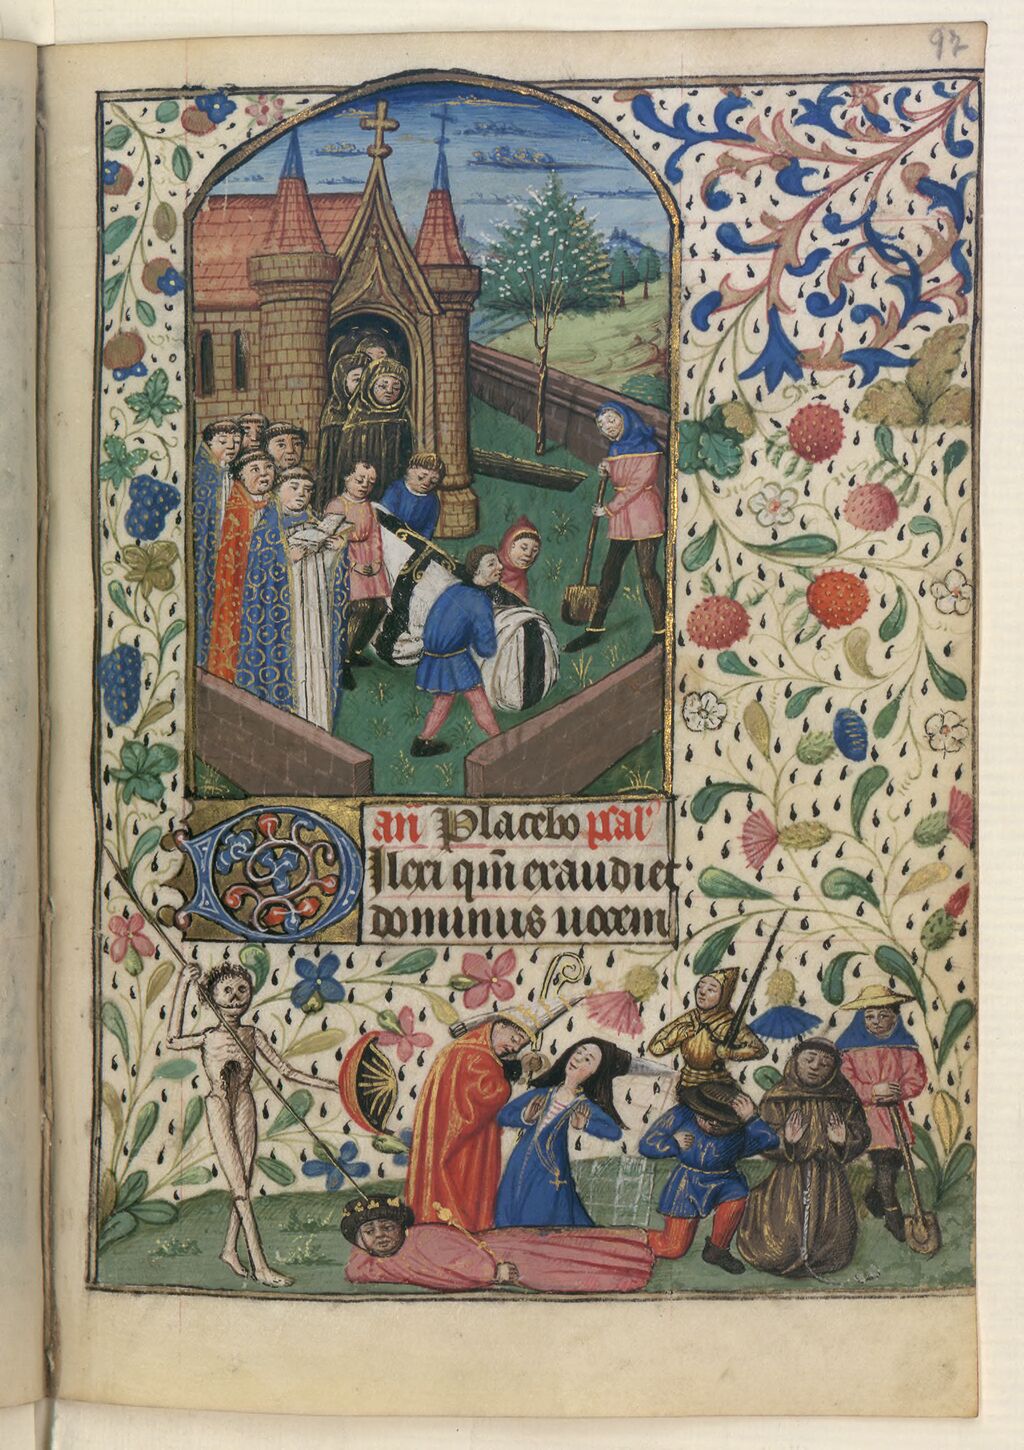 92
añ Placebo psal'
Dilexi qm̄ exaudiet
dominus uocem